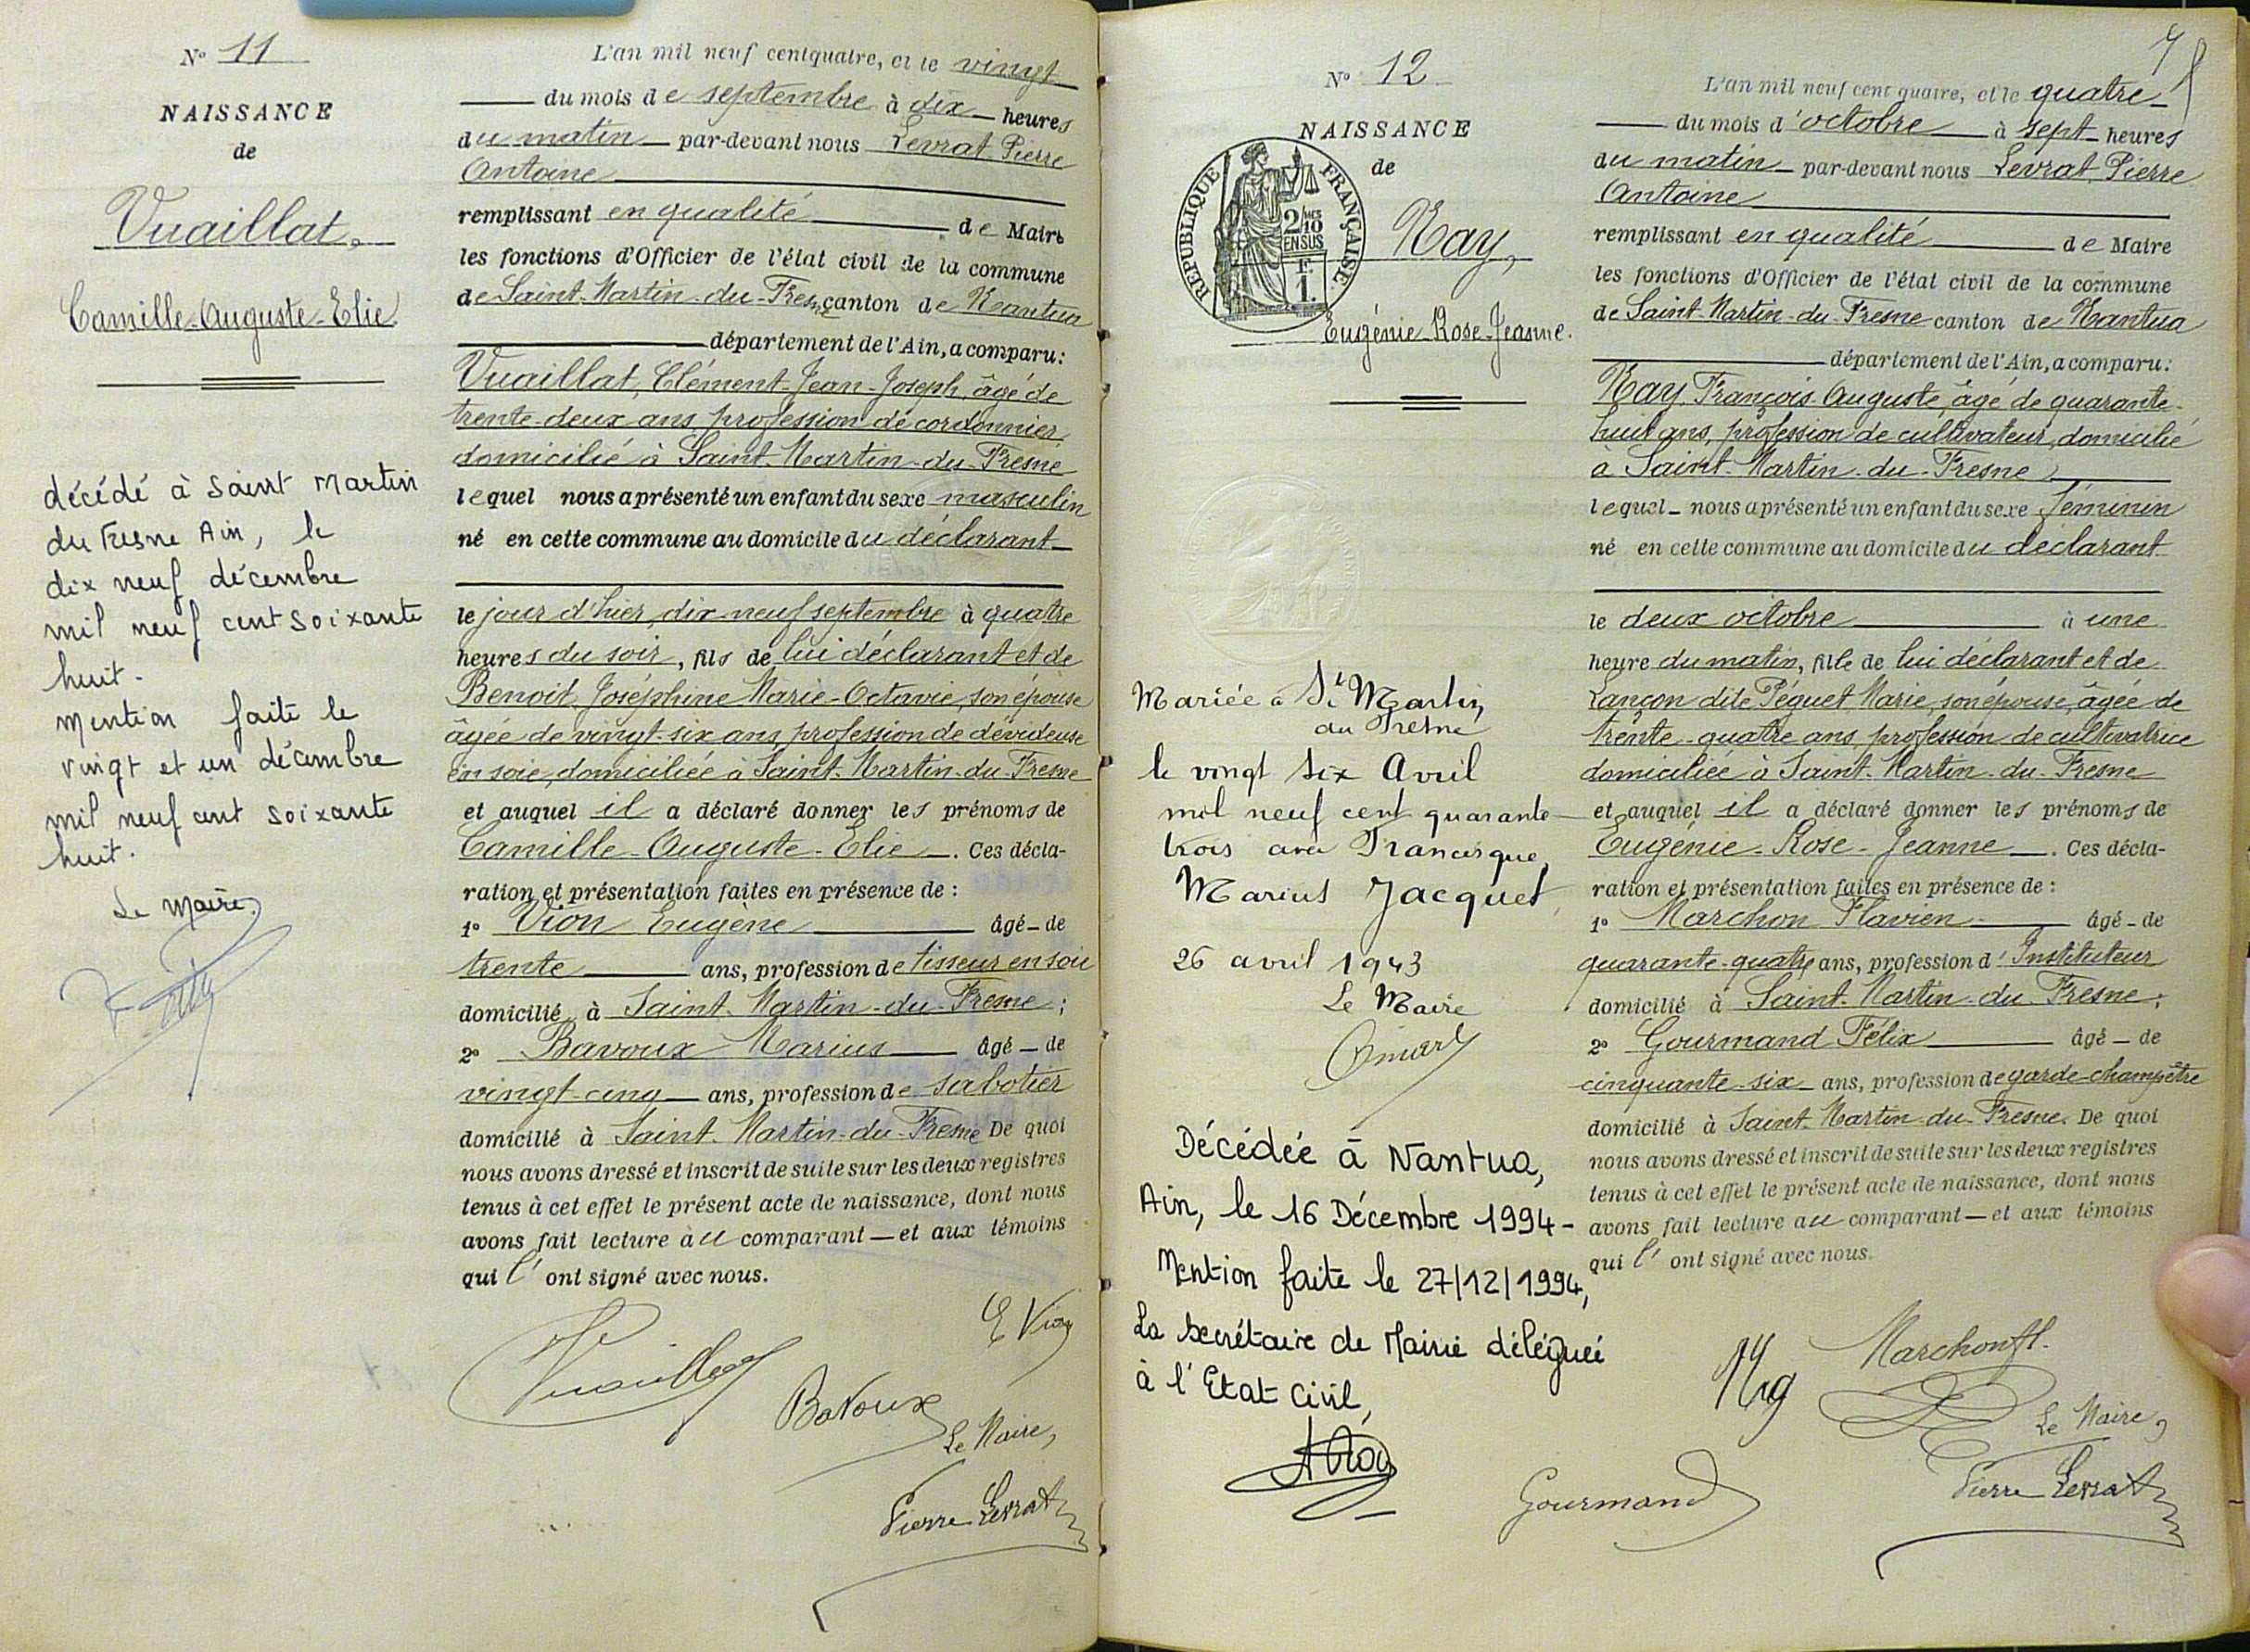 N° 11
NAISSANCE
de
Vuaillat,
Camille-Auguste-Elie
décédé à Saint Martin
du Fresne Ain, le
dix neuf décembre
mil neuf cent soixante
huit.
mention faite le
vingt et un décembre
mil neuf cent soixante
huit.
Le Maire.
L'an mil neuf cent quatre, et le vingt
du mois de septembre à dix heures
du matin par-devant nous Levrat Pierre
Antoine
remplissant en qualité de Maire
les fonctions d'Officier de l'état civil de la commune
de Saint-Martin-du-Fresne canton de Nantua
département de l'Ain, a comparu:
Vuaillat, Clément-Jean-Joseph, âgé de
trente-deux ans, profession de cordonnier,
domicilié à Saint-Martin-du-Fresne
lequel nous a présenté un enfant du sexe masculin
né en cette commune au domicile du déclarant
le jour d'hier, dix-neuf septembre à quatre
heures du soir, fils de lui déclarant et de
Benoit, Joséphine Marie-Octavie, son épouse
âgée de vingt-six ans, profession de dévideuse
en soie, domiciliée à Saint-Martin-du-Fresne
et auquel il a déclaré donner les prénoms de
Camille-Auguste-Elie. Ces décla-
ration et présentation faites en présence de :
1° Vion Eugène âgé de
trente ans, profession de tisseur en soie
domicilié à Saint-Martin-du-Fresne ;
2° Bavoux Marius âgé de
vingt-cinq ans, profession de sabotier
domicilié à Saint-Martin-du-Fresne De quoi
nous avons dressé et inscrit de suite sur les deux registres
tenus à cet effet le présent acte de naissance, dont nous
avons fait lecture au comparant et aux témoins
qui l' ont signé avec nous.
E Vion
Vuaillat
Bavoux
Le Maire,
Pierre Levrat
7
N° 12
NAISSANCE
de
RÉPUBLIQUE FRANÇAISE
2/10 MES
EN SUS
F.
1.
Nay,
Eugénie-Rose-Jeanne.
Mariée à St Martin
du Fresne
le vingt six Avril
mil neuf cent quarante
trois avec Francisque,
Marius Jacquet,
26 avril 1943
Le Maire
Décédée à Nantua,
Ain, le 16 Décembre 1994 -
Mention faite le 27/12/1994,
La Secrétaire de Mairie déléguée
à l'Etat Civil,
L'an mil neuf cent quatre, et le quatre
du mois d'octobre à sept heures
du matin par-devant nous Levrat Pierre
Antoine
remplissant en qualité de Maire
les fonctions d'Officier de l'état civil de la commune
de Saint-Martin-du-Fresne canton de Nantua
département de l'Ain, a comparu:
Nay, François Auguste, âgé de quarante-
huit ans, profession de cultivateur, domicilié
à Saint-Martin-du-Fresne
lequel nous a présenté un enfant du sexe féminin
né en cette commune au domicile du déclarant
le deux octobre à une
heure du matin, fille de lui déclarant et de
Lançon dite Péguet Marie, son épouse, âgée de
trente-quatre ans, profession de cultivatrice
domiciliée à Saint-Martin-du-Fresne
et auquel il a déclaré donner les prénoms de
Eugénie-Rose-Jeanne. Ces décla-
ration et présentation faites en présence de :
1° Marchon Flavien âgé de
quarante-quatre ans, profession d'Instituteur
domicilié à Saint-Martin-du-Fresne ;
2° Gourmand Félix âgé de
cinquante-six ans, profession de garde-champêtre
domicilié à Saint-Martin-du-Fresne. De quoi
nous avons dressé et inscrit de suite sur les deux registres
tenus à cet effet le présent acte de naissance, dont nous
avons fait lecture au comparant et aux témoins
qui l' ont signé avec nous.
Marchon fl.
Le Maire,
Gourmand
Pierre Levrat